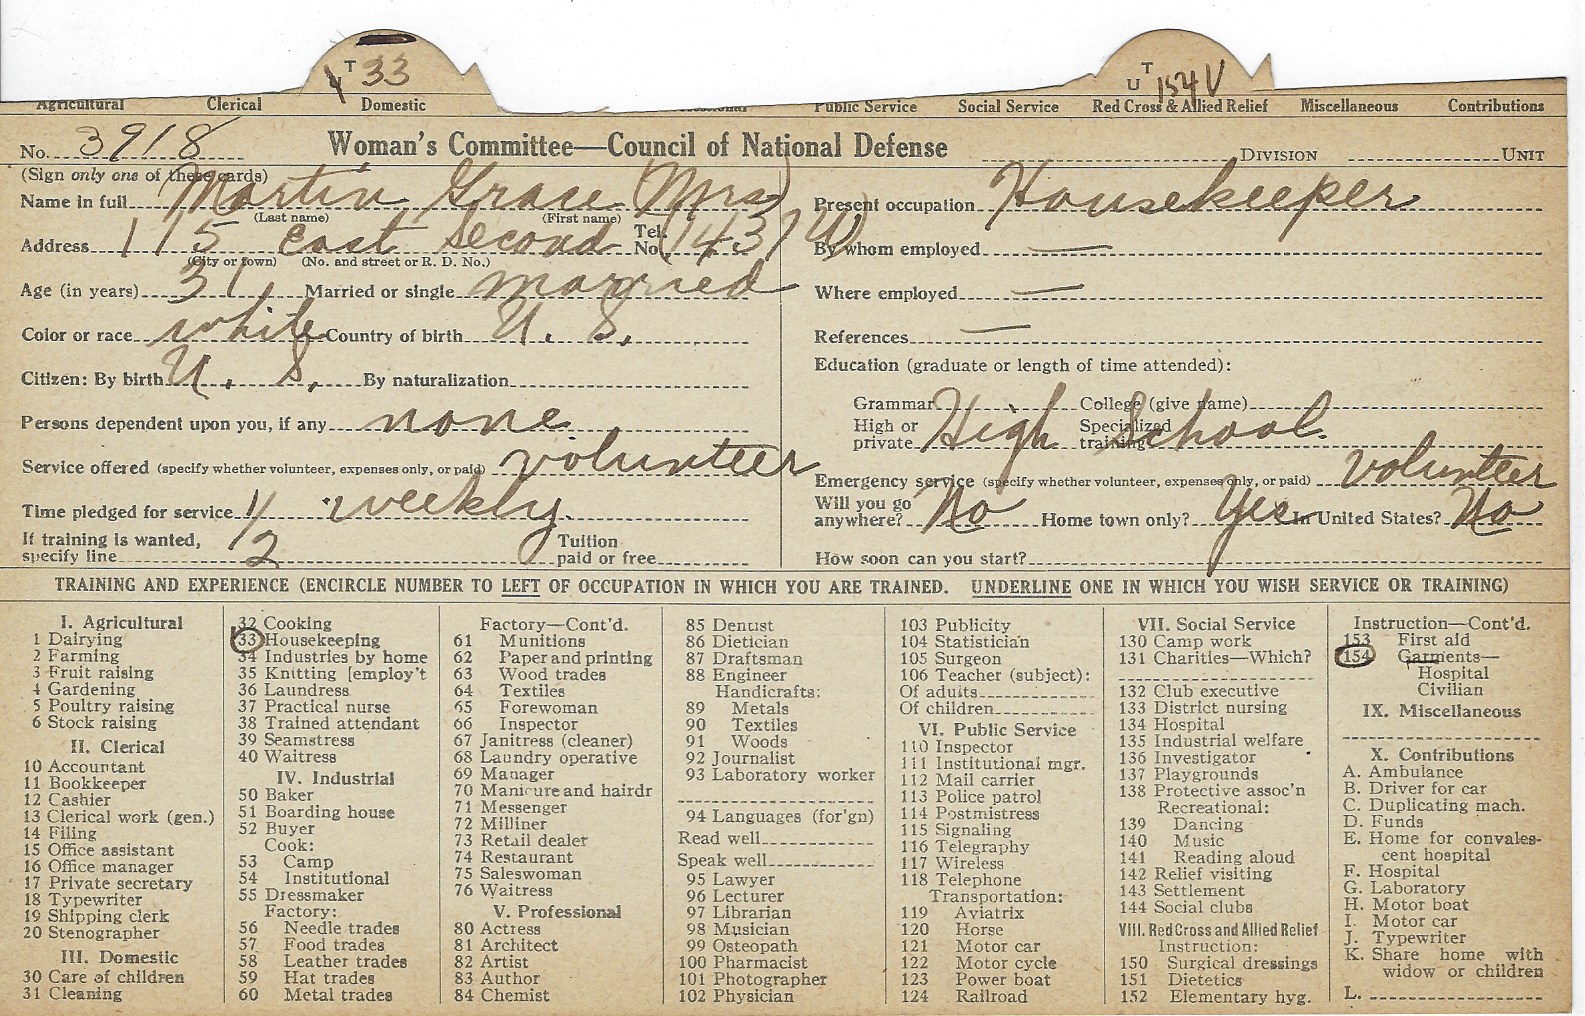 T 33
U T 154 V
Agricultural Clerical Domestic Public Service Social Service Red Cross & Allied Relief Miscellaneous Contributions
No. 3918 Woman's Committee—Council of National Defense DIVISION UNIT
(Sign only one of these cards)
Name in full Martin Grace (Mrs)
(Last name) (First name)
Address 115 East Second Tel. No. (1437 W)
(City or town) (No. and street or R. D. No.)
Age (in years) 31 Married or single married
Color or race white Country of birth U. S.
Citizen: By birth U. S. By naturalization
Persons dependent upon you, if any none
Service offered (specify whether volunteer, expenses only, or paid) volunteer
Time pledged for service 1/2 weekly.
If training is wanted, specify line Tuition paid or free
Present occupation Housekeeper
By whom employed —
Where employed —
References —
Education (graduate or length of time attended):
Grammar College (give name)
High or private High School. Specialized training
Emergency service (specify whether volunteer, expenses only, or paid) volunteer
Will you go anywhere? No Home town only? Yes In United States? No
How soon can you start?
TRAINING AND EXPERIENCE (ENCIRCLE NUMBER TO LEFT OF OCCUPATION IN WHICH YOU ARE TRAINED. UNDERLINE ONE IN WHICH YOU WISH SERVICE OR TRAINING)
I. Agricultural
1 Dairying
2 Farming
3 Fruit raising
4 Gardening
5 Poultry raising
6 Stock raising
II. Clerical
10 Accountant
11 Bookkeeper
12 Cashier
13 Clerical work (gen.)
14 Filing
15 Office assistant
16 Office manager
17 Private secretary
18 Typewriter
19 Shipping clerk
20 Stenographer
III. Domestic
30 Care of children
31 Cleaning
32 Cooking
33 Housekeeping
34 Industries by home
35 Knitting [employ't
36 Laundress
37 Practical nurse
38 Trained attendant
39 Seamstress
40 Waitress
IV. Industrial
50 Baker
51 Boarding house
52 Buyer
Cook:
53 Camp
54 Institutional
55 Dressmaker
Factory:
56 Needle trades
57 Food trades
58 Leather trades
59 Hat trades
60 Metal trades
Factory—Cont'd.
61 Munitions
62 Paper and printing
63 Wood trades
64 Textiles
65 Forewoman
66 Inspector
67 Janitress (cleaner)
68 Laundry operative
69 Manager
70 Manicure and hairdr
71 Messenger
72 Milliner
73 Retail dealer
74 Restaurant
75 Saleswoman
76 Waitress
V. Professional
80 Actress
81 Architect
82 Artist
83 Author
84 Chemist
85 Dentist
86 Dietician
87 Draftsman
88 Engineer
Handicrafts:
89 Metals
90 Textiles
91 Woods
92 Journalist
93 Laboratory worker
94 Languages (for'gn)
Read well
Speak well
95 Lawyer
96 Lecturer
97 Librarian
98 Musician
99 Osteopath
100 Pharmacist
101 Photographer
102 Physician
103 Publicity
104 Statistician
105 Surgeon
106 Teacher (subject):
Of adults
Of children
VI. Public Service
110 Inspector
111 Institutional mgr.
112 Mail carrier
113 Police patrol
114 Postmistress
115 Signaling
116 Telegraphy
117 Wireless
118 Telephone
Transportation:
119 Aviatrix
120 Horse
121 Motor car
122 Motor cycle
123 Power boat
124 Railroad
VII. Social Service
130 Camp work
131 Charities—Which?
132 Club executive
133 District nursing
134 Hospital
135 Industrial welfare
136 Investigator
137 Playgrounds
138 Protective assoc'n
Recreational:
139 Dancing
140 Music
141 Reading aloud
142 Relief visiting
143 Settlement
144 Social clubs
VIII. Red Cross and Allied Relief
Instruction:
150 Surgical dressings
151 Dietetics
152 Elementary hyg.
Instruction—Cont'd.
153 First aid
154 Garments—
Hospital
Civilian
IX. Miscellaneous
X. Contributions
A. Ambulance
B. Driver for car
C. Duplicating mach.
D. Funds
E. Home for convales-
cent hospital
F. Hospital
G. Laboratory
H. Motor boat
I. Motor car
J. Typewriter
K. Share home with
widow or children
L.